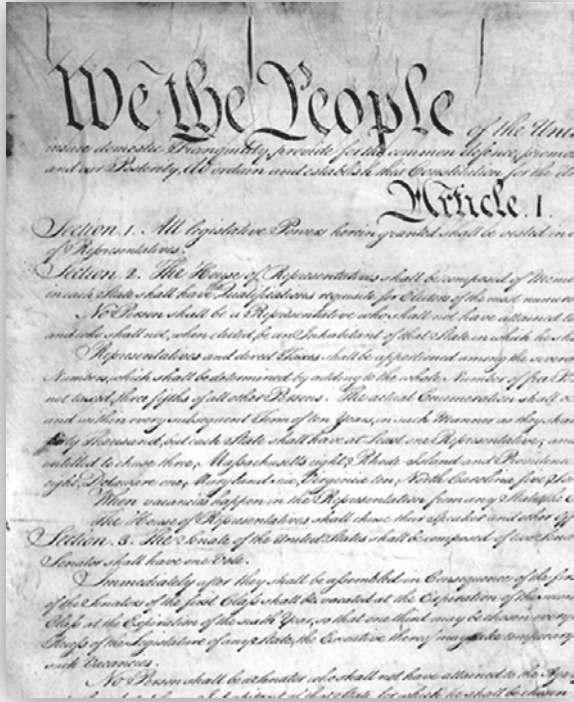 We the People of the Unit
insure domestic Tranquility, provide for the common defence, promo
and our Posterity, do ordain and establish this Constitution for the Un
Article. I.
Section. 1. All legislative Powers herein granted shall be vested in a
of Representatives.
Section. 2. The House of Representatives shall be composed of Memb
in each State shall have Qualifications requisite for Electors of the most numero
No Person shall be a Representative who shall not have attained to
and who shall not, when elected, be an Inhabitant of that State in which he sha
Representatives and direct Taxes shall be apportioned among the several
Numbers, which shall be determined by adding to the whole Number of free P
not taxed, three fifths of all other Persons. The actual Enumeration shall be
and within every subsequent Term of ten Years, in such Manner as they shal
thirty Thousand, but each State shall have at Least one Representative; and
entitled to chuse three, Massachusetts eight, Rhode Island and Providence
eight, Delaware one, Maryland six, Virginia ten, North Carolina five, So
When vacancies happen in the Representation from any State, the E
The House of Representatives shall chuse their Speaker and other Off
Section. 3. The Senate of the United States shall be composed of two Sena
Senator shall have one Vote.
Immediately after they shall be assembled in Consequence of the first
of the Senators of the first Class shall be vacated at the Expiration of the secon
Class at the Expiration of the sixth Year, so that one third may be chosen every
Recess of the Legislature of any State, the Executive thereof may make temporary
such Vacancies.
No Person shall be a Senator who shall not have attained to the Age
Inhabitant of that State for which he shall be chosen